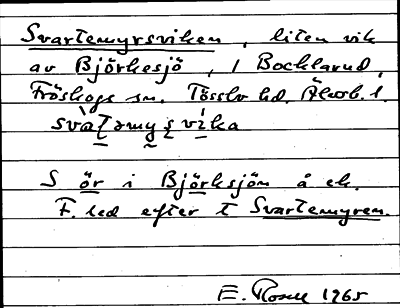 Svartemyrsviken, liten vik
av Björkesjö, i Bocklarud,
Fröskogs sn. Tössbo hd. Älvsb. l.
svàʈəmyʂ vìka
S ör i Björksjön å ek.
F. led efter t Svartemyren.
E. 1965